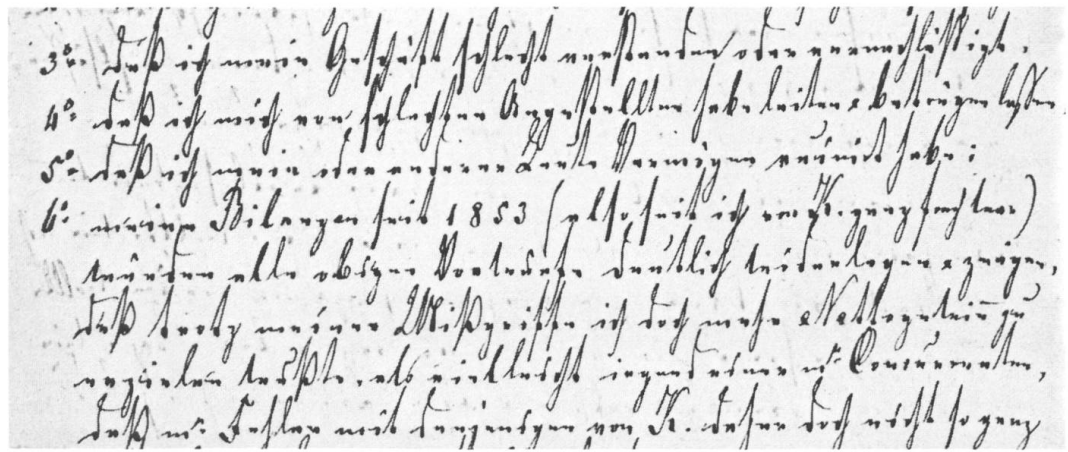 3°. daß ich mein Geschäft schlecht verstanden oder vernachlässigt.
4° daß ich mich von schlechten Angestellten habe leiten & betrügen lassen.
5° daß ich mein oder anderer Leute Vermögen ruinirt habe;
6° meine Bilanzen seit 1853 (also seit ich von K. ganz
würden alle obigen Vorwürfe deutlich widerlegen & zeigen,
daß trotz meiner Mißgriffe ich doch mehr Nettogewinn zu
erzielen wußte, als vielleicht irgend einer m. Concurrenten,
daß m. Fehler mit denjenigen von K. daher doch nicht so ganz